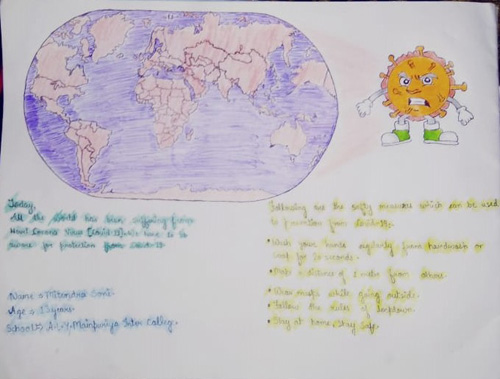 Today,
All the World has been suffering from
Novel Corona Virus (Covid-19). We have to be
aware for protection from Covid-19
Name :- Mitendra Soni
Age :- years
School :- Mainpuriya Inter College.
Following are the safty measures which can be used
to prevention from Covid-19.
• Wash your hands regularly from handwash or
soap for 20 seconds.
• Make a distance of 1 meter from others.
• Wear masks while going outside.
• Follow the rules of lockdown.
• Stay at home, Stay safe.